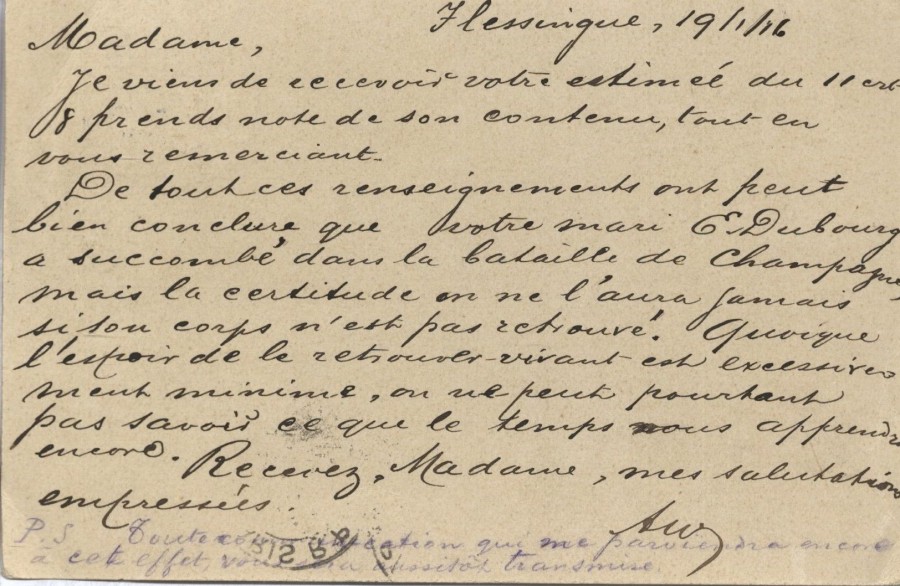 Flessingue, 19/1/16
Madame,
Je viens de recevoir votre estimeé du 11 crt
& prends note de son contenu, tout en
vous remerciant.
De tout ces renseignements ont peut
bien conclure que votre mari E. Dubourg
a succombé dans la bataille de Champagne,
mais la certitude on ne l'aura jamais
si son corps n'est pas retrouvé. Quoique
l'espoir de le retrouver vivant est excessive
ment minime, on ne peut pourtant
pas savoir ce que le temps nous apprendra
encore.
Recevez, Madame, mes salutations
empressées.
P.S Toute communication qui me parviendra encore
à cet effet, vous sera aussitôt transmise.